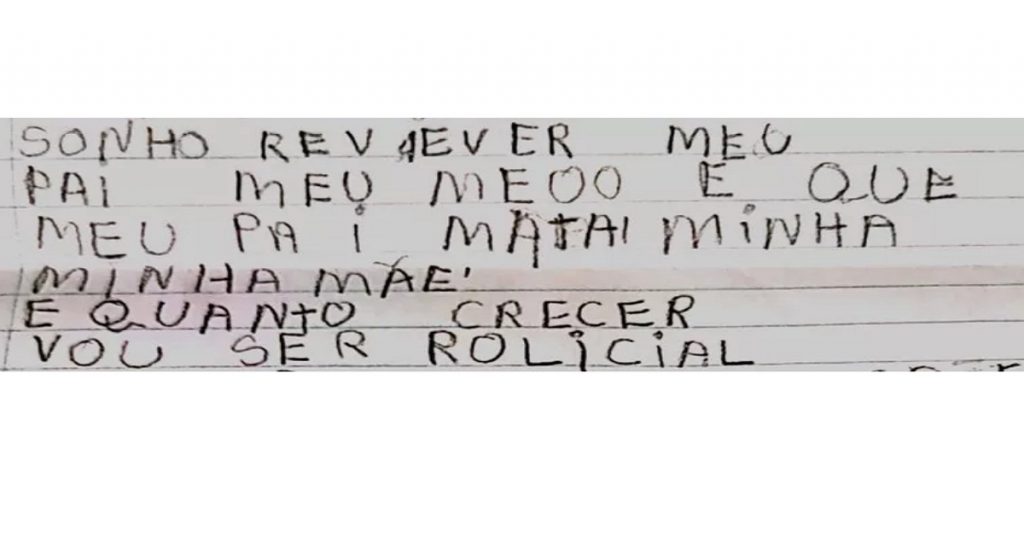 SONHO REV VEVER MEU
PAI MEU MEOO E QUE
MEU PAI MATAI MINHA
MINHA MÃE'
E QUANTO CRECER
VOU SER ROLICIAL